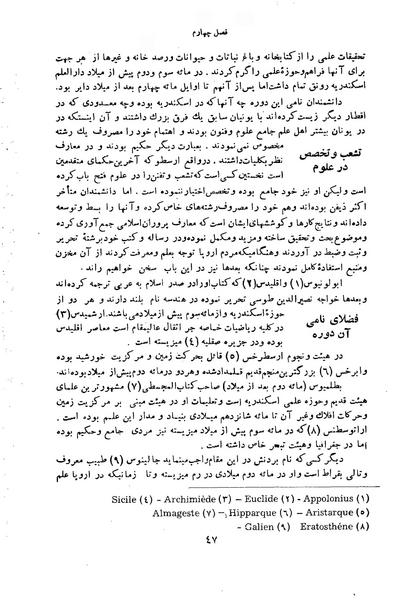 فصل چهارم
تحقیقات علمی را از کتابخانه و باغ نباتات و حیوانات و رصد خانه و غیرها از هر جهت
برای آنها فراهم و حوزهٔ علمی را گرم کردند . در مائه سوم و دوم پیش از میلاد دارالعلم
اسکندریه رونق تمام داشت اما پس از آنهم تا اوایل مائه چهارم بعد از میلاد دایر بود.
دانشمندان نامی این دوره چه آنها که در اسکندریه بوده وچه معدودی که در
اقطار دیگر زیست کرده‌اند با یونیان سابق یک فرق بزرگ داشتند و آن اینستکه در
در یونان بیشتر اهل علم جامع علوم وفنون بودند و اهتمام خود را مصروف یک رشته
مخصوص نمی‌نمودند . بعبارت دیگر حکیم بودند و در معارف
تشعب و تخصص
در علوم
نظر بکلیات داشتند . در واقع ارسطو که آخرین حکمای متقدمین
است نخستین کسی است که تشعب و تفنن را در علوم فتح باب کرده
است ولیکن او نیز خود جامع بوده و تخصص اختیار ننموده است . اما دانشمندان متأخر
اکثر ذیفن بوده‌اند وهم خود را مصروف رشته‌های خاص کرده و آنها را بسط و توسعه
داده‌اند ونتایج کارها و کوششهای ایشان است که معارف پروران اسلامی جمع آوری کرده
و موضوع بحث و تحقیق ساخته و مزید و مکمل نموده و در رساله و کتب خود برشتهٔ تحریر
و ثبت وضبط در آوردند و هنگامیکه مردم اروپا توجه بعلم ومعرفت کردند از آن مخزن
ومنبع استفادهٔ کامل نمودند چنانکه بعدها نیز در این باب سخن خواهیم راند .
ابولونیوس (۱) و اقلیدس (۲) که کتاب او را در صدر اسلام به عربی ترجمه کرده‌اند
و بعدها خواجه نصیرالدین طوسی تحریر نموده در هندسه نام بلند دارند و هر دو از
حوزهٔ اسکندریه و از مائه سوم پیش از میلاد می‌باشند. ارشمیدس (۳)
فضلای نامی
آن دوره
در کلیه ریاضیات خاصه جر اثقال عالیمقام است معاصر اقلیدس
بوده ودر جزیره صقلیه (٤) میزیسته است .
در هیئت ونجوم ارسطرخس (٥) قائل بحرکت زمین و مرکزیت خورشید بوده
وابرخس (٦) بزرگترین منجم قدیم قلمداد شده و هر دو در مائه دوم پیش از میلاد بوده‌اند.
بطلمیوس (مائه دوم بعد از میلاد) صاحب کتاب المجسطی (۷) مشهورترین علمای
هیئت قدیم وحوزه علمی اسکندریه است و تعلیمات او در هیئت مبنی بر مرکزیت زمین
وحرکات افلاک وغیر آن تا مائه شانزدهم میلادی بنیاد و مدار این علم بوده است .
اراتوسطنس (۸) که در مائه سوم پیش از میلاد میزیسته نیز مردی جامع وحکیم بوده
اما در جغرافیا و هیئت تبحر خاص داشته است .
دیگر کسی که نام بردنش در این مقام واجب مینماید جالینوس (۹) طبیب معروف
وتالی بقراط است و او در مائه دوم میلادی در رم میزیسته وتا زمانیکه در اروپا علم
Sicile (٤) – Archimiède (۳) – Euclide (۲) - Appolonius (۱)
Almageste (۷) – Hipparque (٦) – Aristarque (٥)
- Galien (۹) Eratosthéne (۸)
٤٧